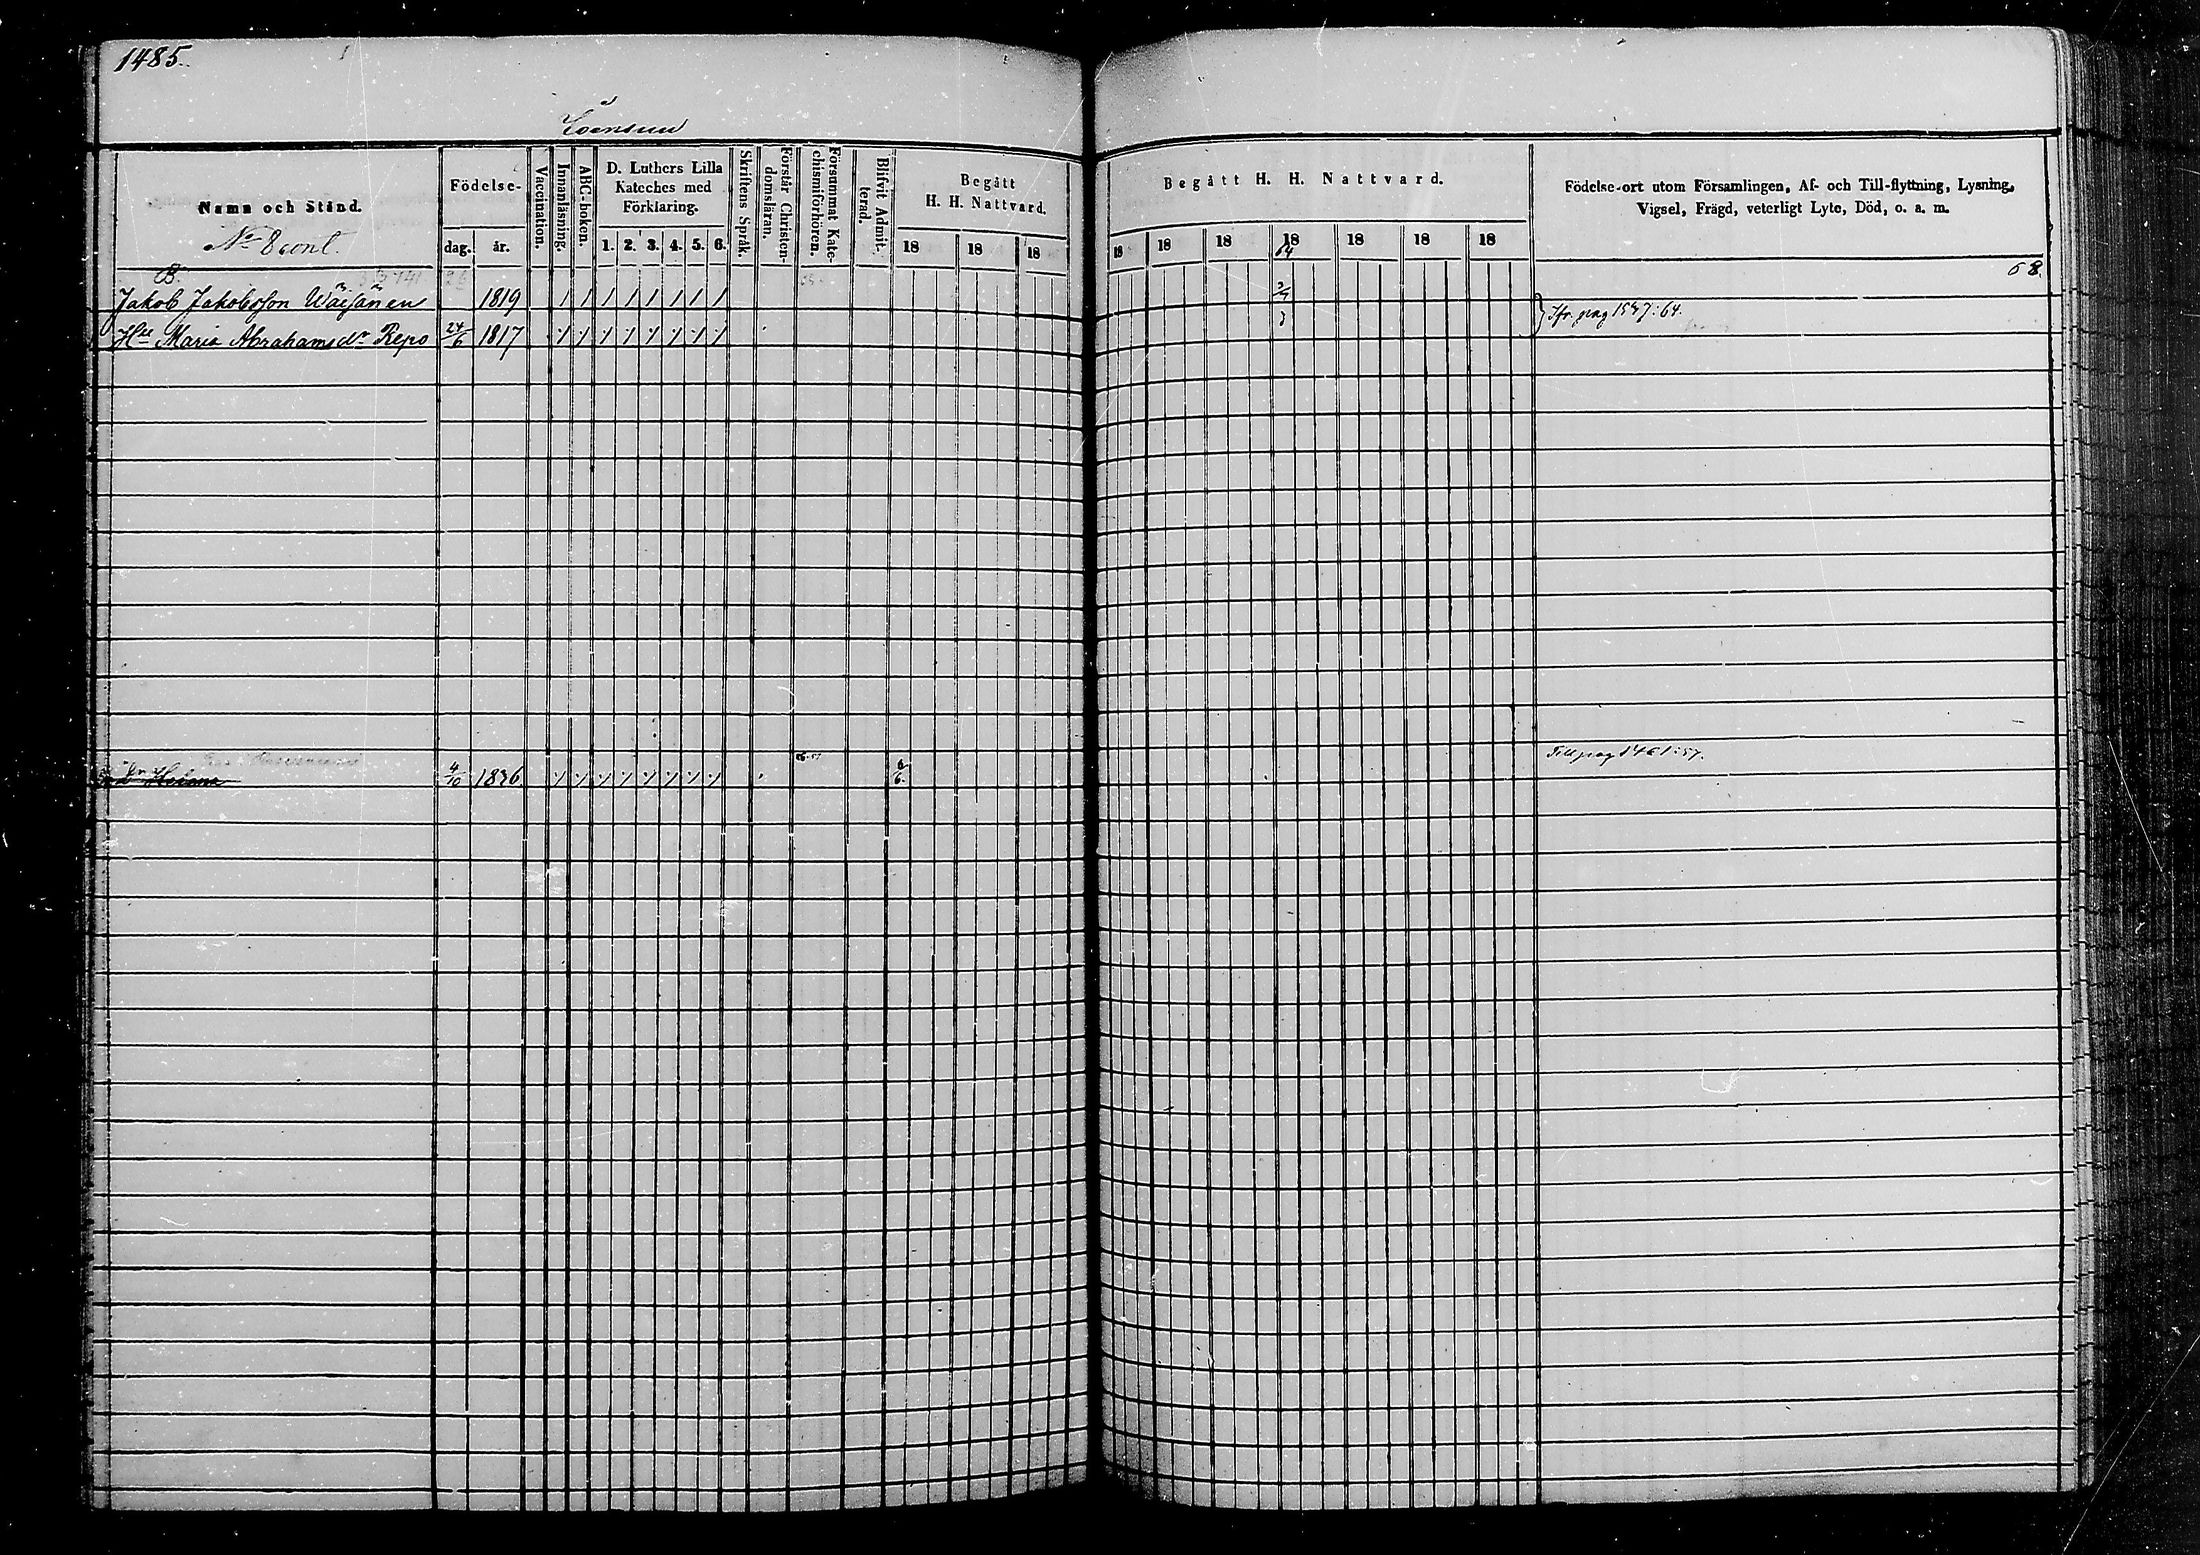 1485.
Namn och Stånd.
No 8 cont.
Födelse-
dag. år.
Vaccination.
Innanläsning.
ABC-boken.
D. Luthers Lilla
Kateches med
Förklaring.
1. 2. 3. 4. 5. 6.
Skriftens Språk.
Förstår Christen-
domsläran.
Försummat Kate-
chismiförhören.
Blifvit Admit-
terad.
Begått
H. H. Nattvard.
18 18 18
Begått H. H. Nattvard.
18 18 18 18 18 18 18
64
Födelse-ort utom Församlingen, Af- och Till-flyttning, Lysning,
Vigsel, Frägd, veterligt Lyte, Död, o. a. m.
68.
B.
Jakob Jakobsson Wäisänen 1819 / / / / / / / /
Hu Maria Abrahamsdr Repo 24/6 1817 / / / / / / / /
Jfr. pag 1547:64.
Dr Helena 4/10 1836. / / / / / / / /
56.57
Till pag 1461:57.